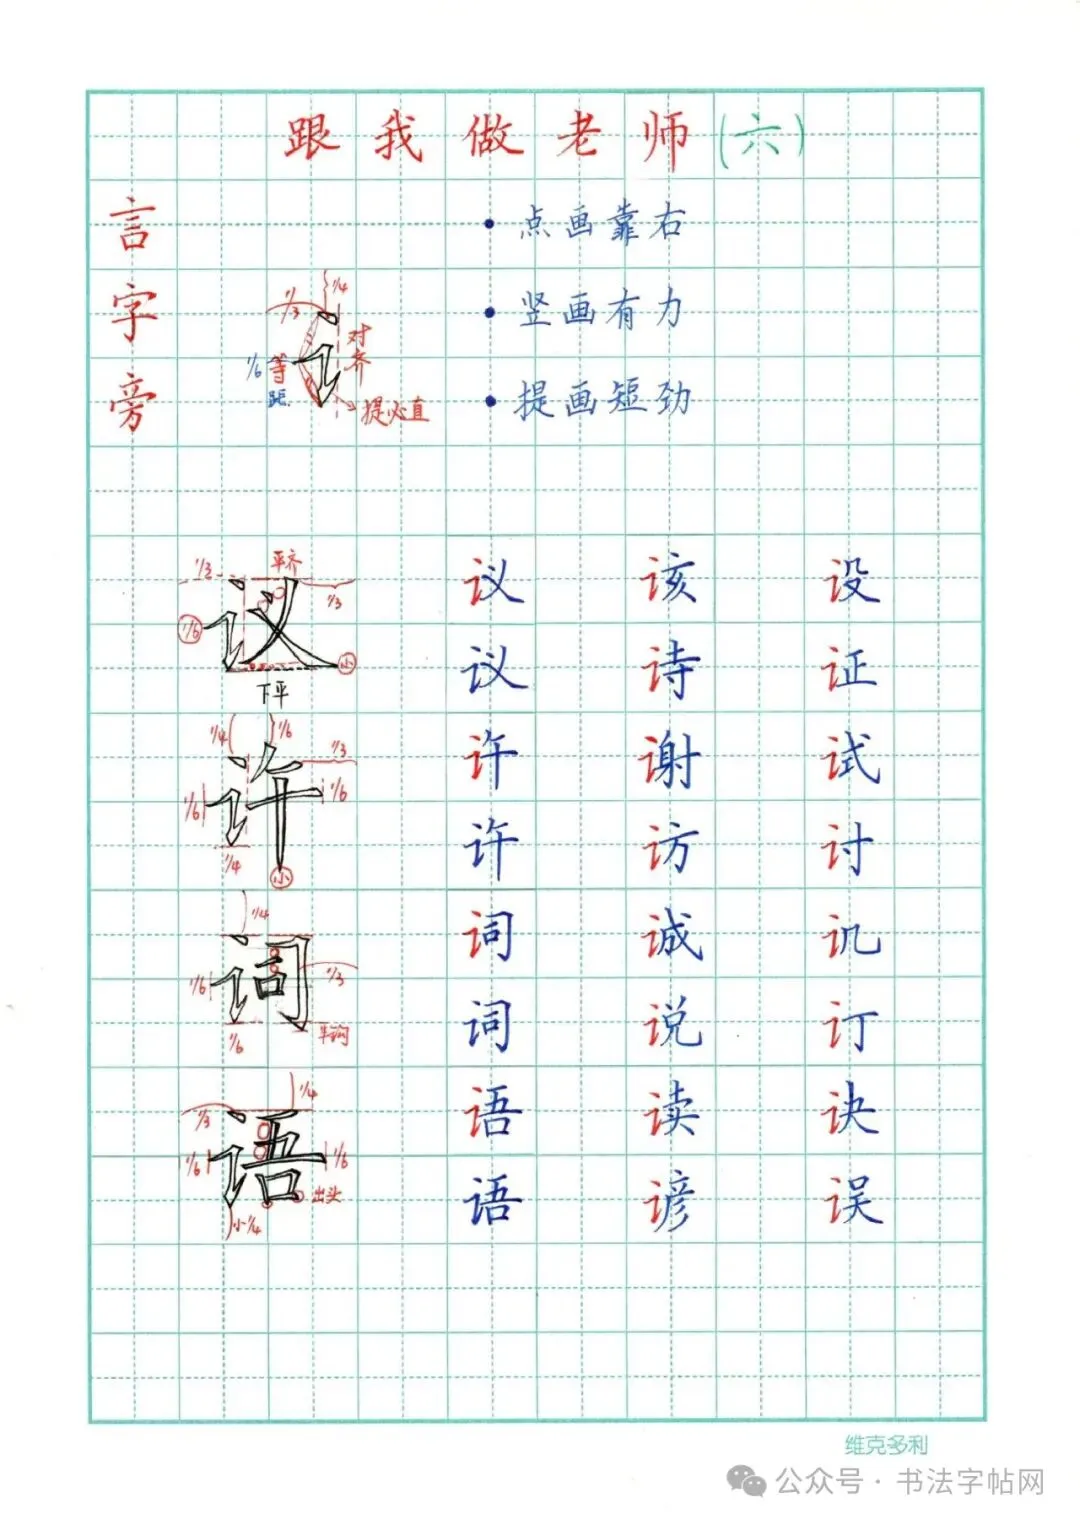 跟我做老师(六)
言字旁
• 点画靠右
• 竖画有力
• 提画短劲
1/3 1/4
对齐
1/6 等距
提必直
1/3 平齐 1/3
1/6 小
下平
议 该 设
议 诗 证
1/4 1/6 1/3
1/6 1/6
1/4 小
许 谢 试
许 访 讨
1/4
1/6 1/3
1/6 半钩
词 诚 讥
词 说 订
1/4
1/3
1/6 1/6
出头
小1/4
语 读 诀
语 谚 误
维克多利
公众号·书法字帖网